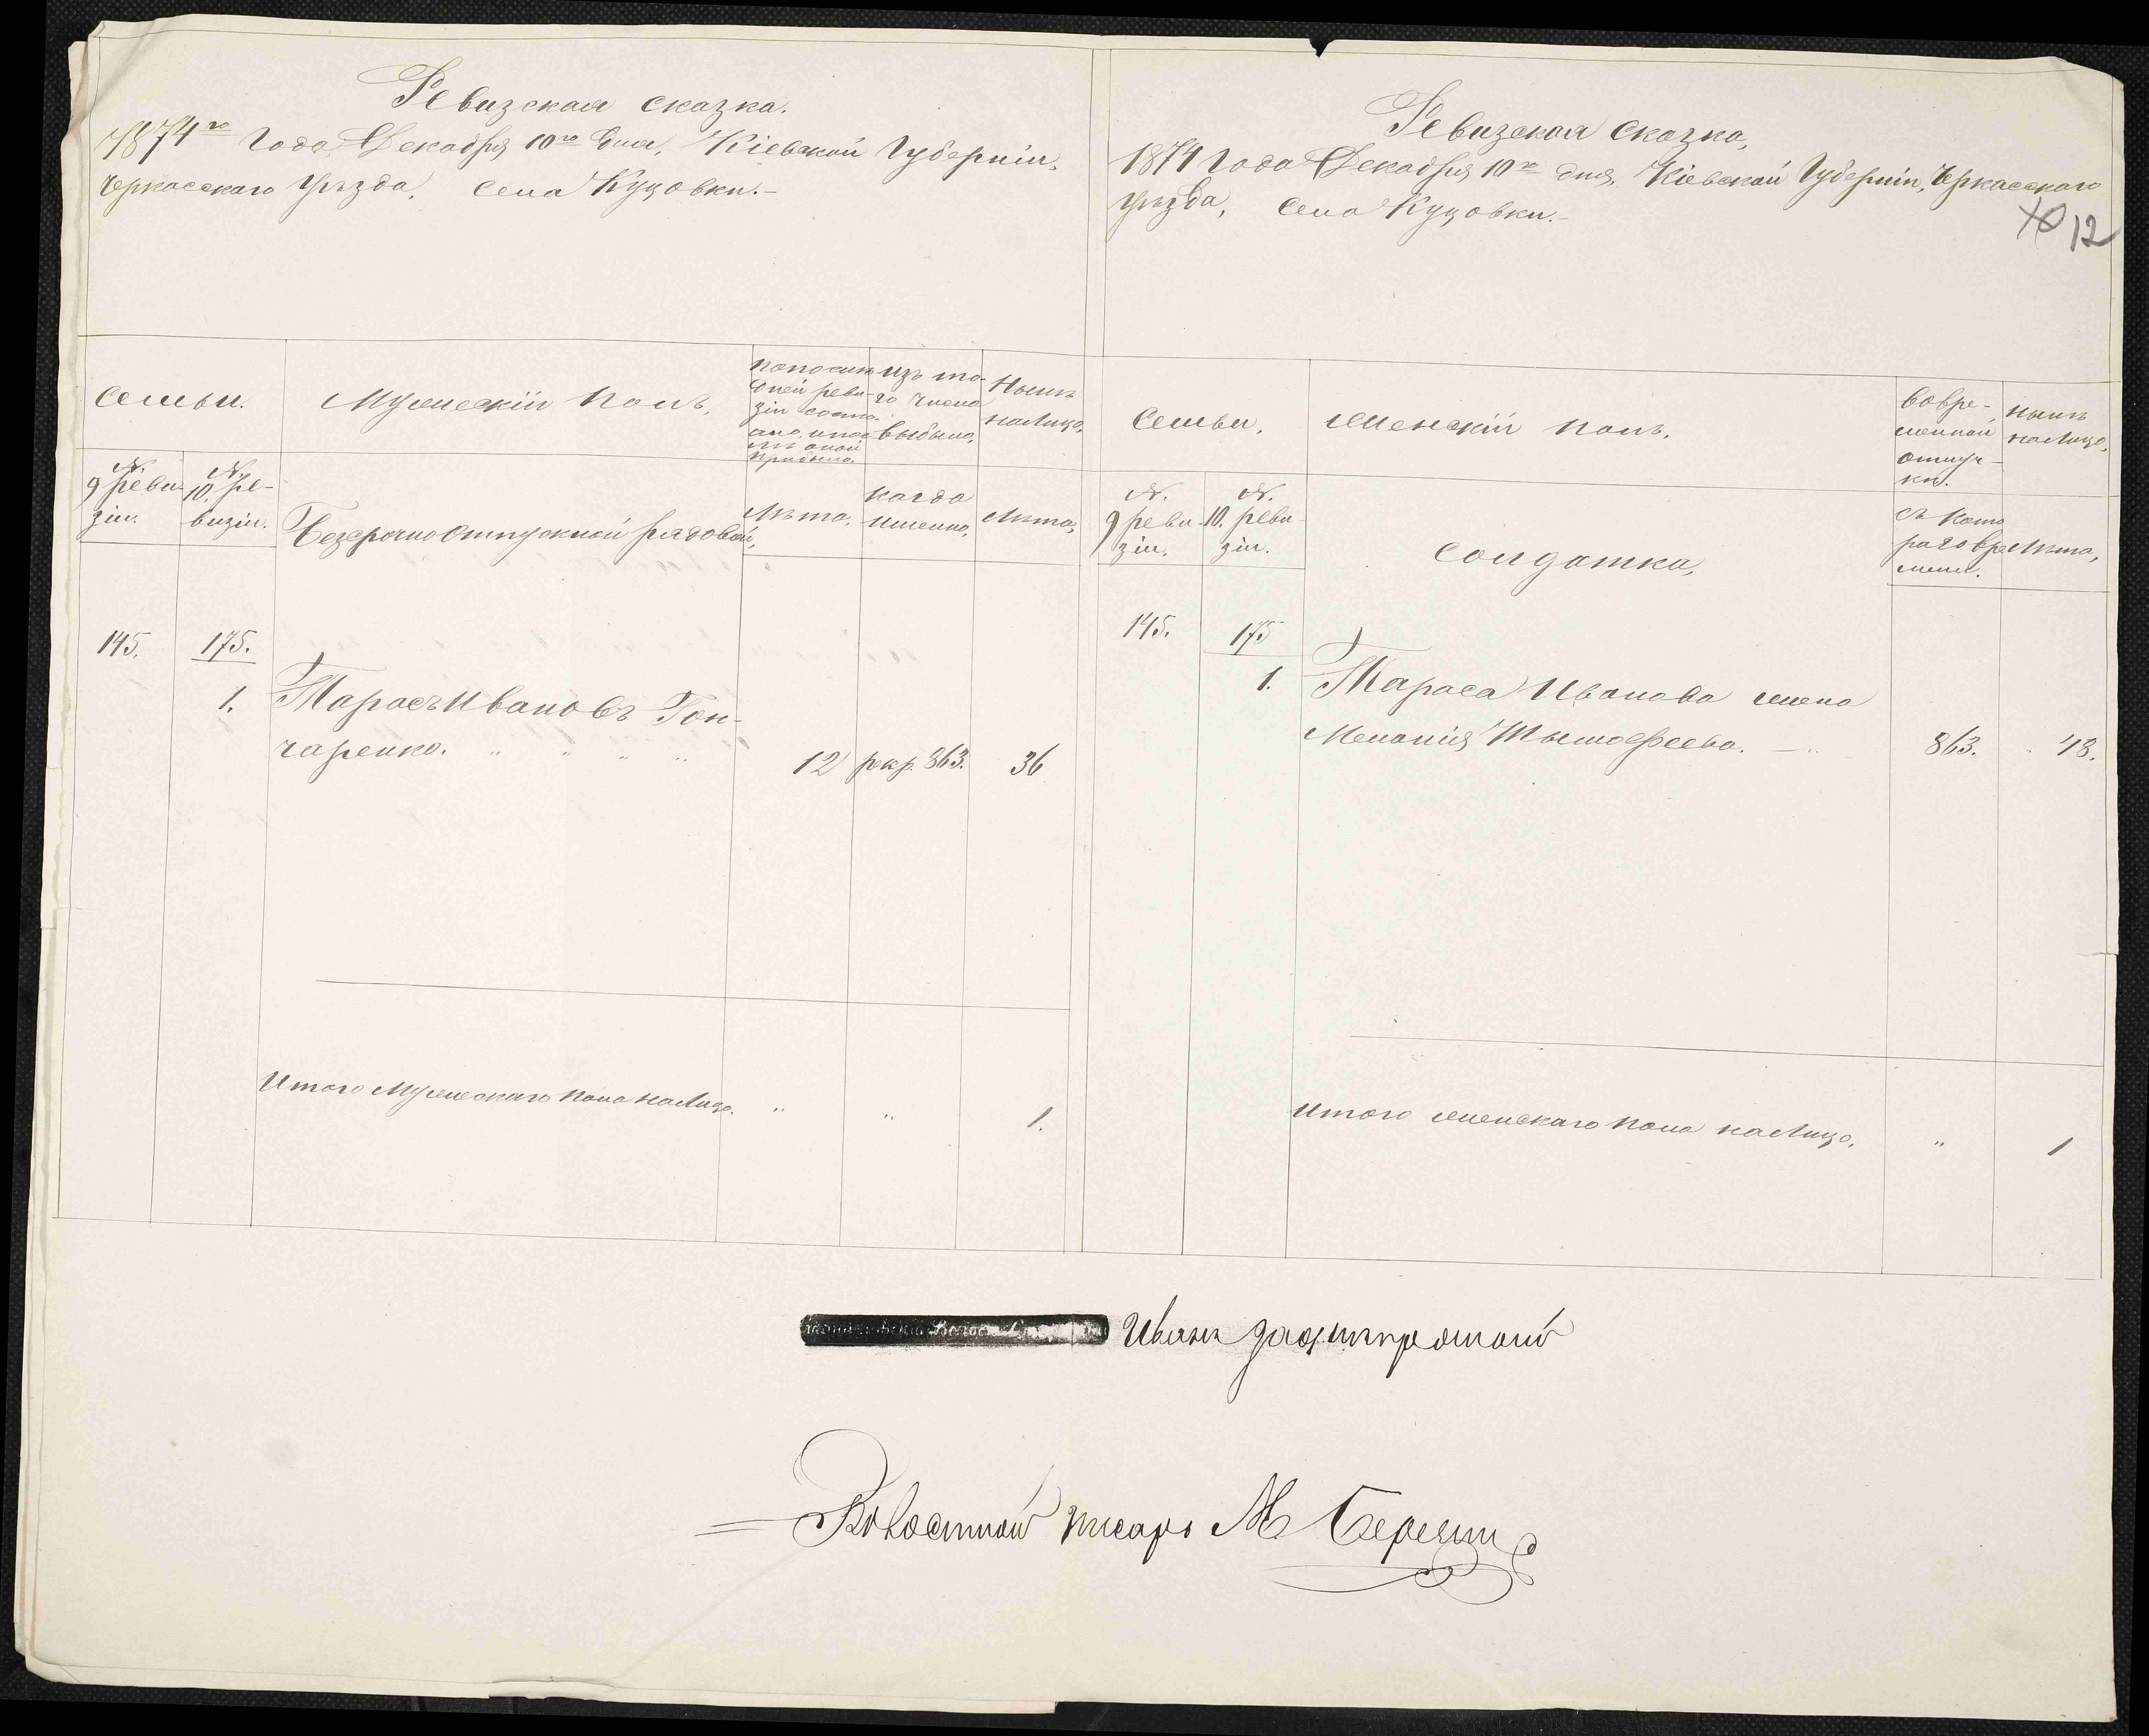 Ревизская сказка.
1874го Года Декабря 10го дня, Кіевской Губерніи,
Черкасскаго Уѣзда, Села Куцовки.–
Семьи.
Мужескій полъ,
По послѣд-
ней реви-
зіи состо-
яло, и пос-
лѣ оной
прибыло.
изъ то-
го числа
выбыло,
Нынѣ
на лицо,
№.
9 реви-
зіи.
№.
10. ре-
визіи.
Безсрочно отпускной рядовой,
Лѣта,
когда
именно,
Лѣта,
145.
175.
1.
Тарасъ Ивановъ Гон-
чаренко. " " " "
12
рекр. 863.
36
Итого Мужескаго пола на лицо. " " 1.
Ревизская сказка,
1874 Года Декабря 10го дня, Кіевской Губерніи, Черкасскаго
Уѣзда, Села Куцовки.–
12
Семьи,
женскій полъ,
во вре-
менной
отлуч-
ки.
нынѣ
на лицо,
№.
9 реви-
зіи.
№.
10. реви-
зіи.
солдатка,
съ кото
раго вре
мени.
Лѣта,
145.
175
1.
Тараса Иванова жена
Меланія Тымофеева. – "
863.
48.
Итого женскаго пола на лицо, " 1
Иванъ
Волостной писарь М